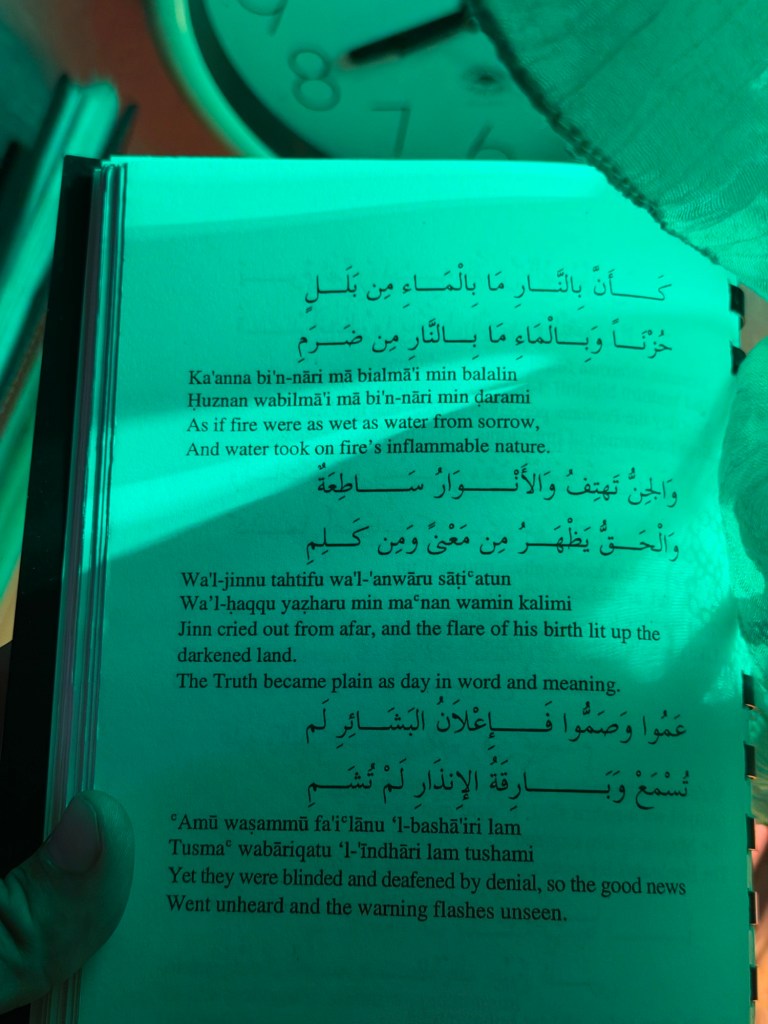 9
8
7
6
كَــــأَنَّ بِالنَّـــارِ مَا بِالْمَـــاءِ مِن بَلَــلٍ
حُزْنـــاً وَبِـــالْمَاءِ مَا بِـــالنَّارِ مِن ضَـــرَمِ
Ka'anna bi'n-nāri mā bialmā'i min balalin
Ḥuznan wabilmā'i mā bi'n-nāri min ḍarami
As if fire were as wet as water from sorrow,
And water took on fire's inflammable nature.
وَالجِنُّ تَهتِفُ وَالأَنْــــوَارُ سَــــاطِعَةٌ
وَالْحَـــقُّ يَظْهَـــرُ مِن مَعْنىً وَمِن كَـــلِمِ
Wa'l-jinnu tahtifu wa'l-'anwāru sāṭiᶜatun
Wa'l-ḥaqqu yaẓharu min maᶜnan wamin kalimi
Jinn cried out from afar, and the flare of his birth lit up the
darkened land.
The Truth became plain as day in word and meaning.
عَمُوا وَصَمُّوا فَــــإِعْلَانُ البَشَــائِرِ لَم
تُسْمَعْ وَبَـــــارِقَةُ الإِنذَارِ لَمْ تُشَـــمِ
ᶜAmū waṣammū fa'iᶜlānu ‘l-bashā'iri lam
Tusmaᶜ wabāriqatu ‘l-'īndhāri lam tushami
Yet they were blinded and deafened by denial, so the good news
Went unheard and the warning flashes unseen.